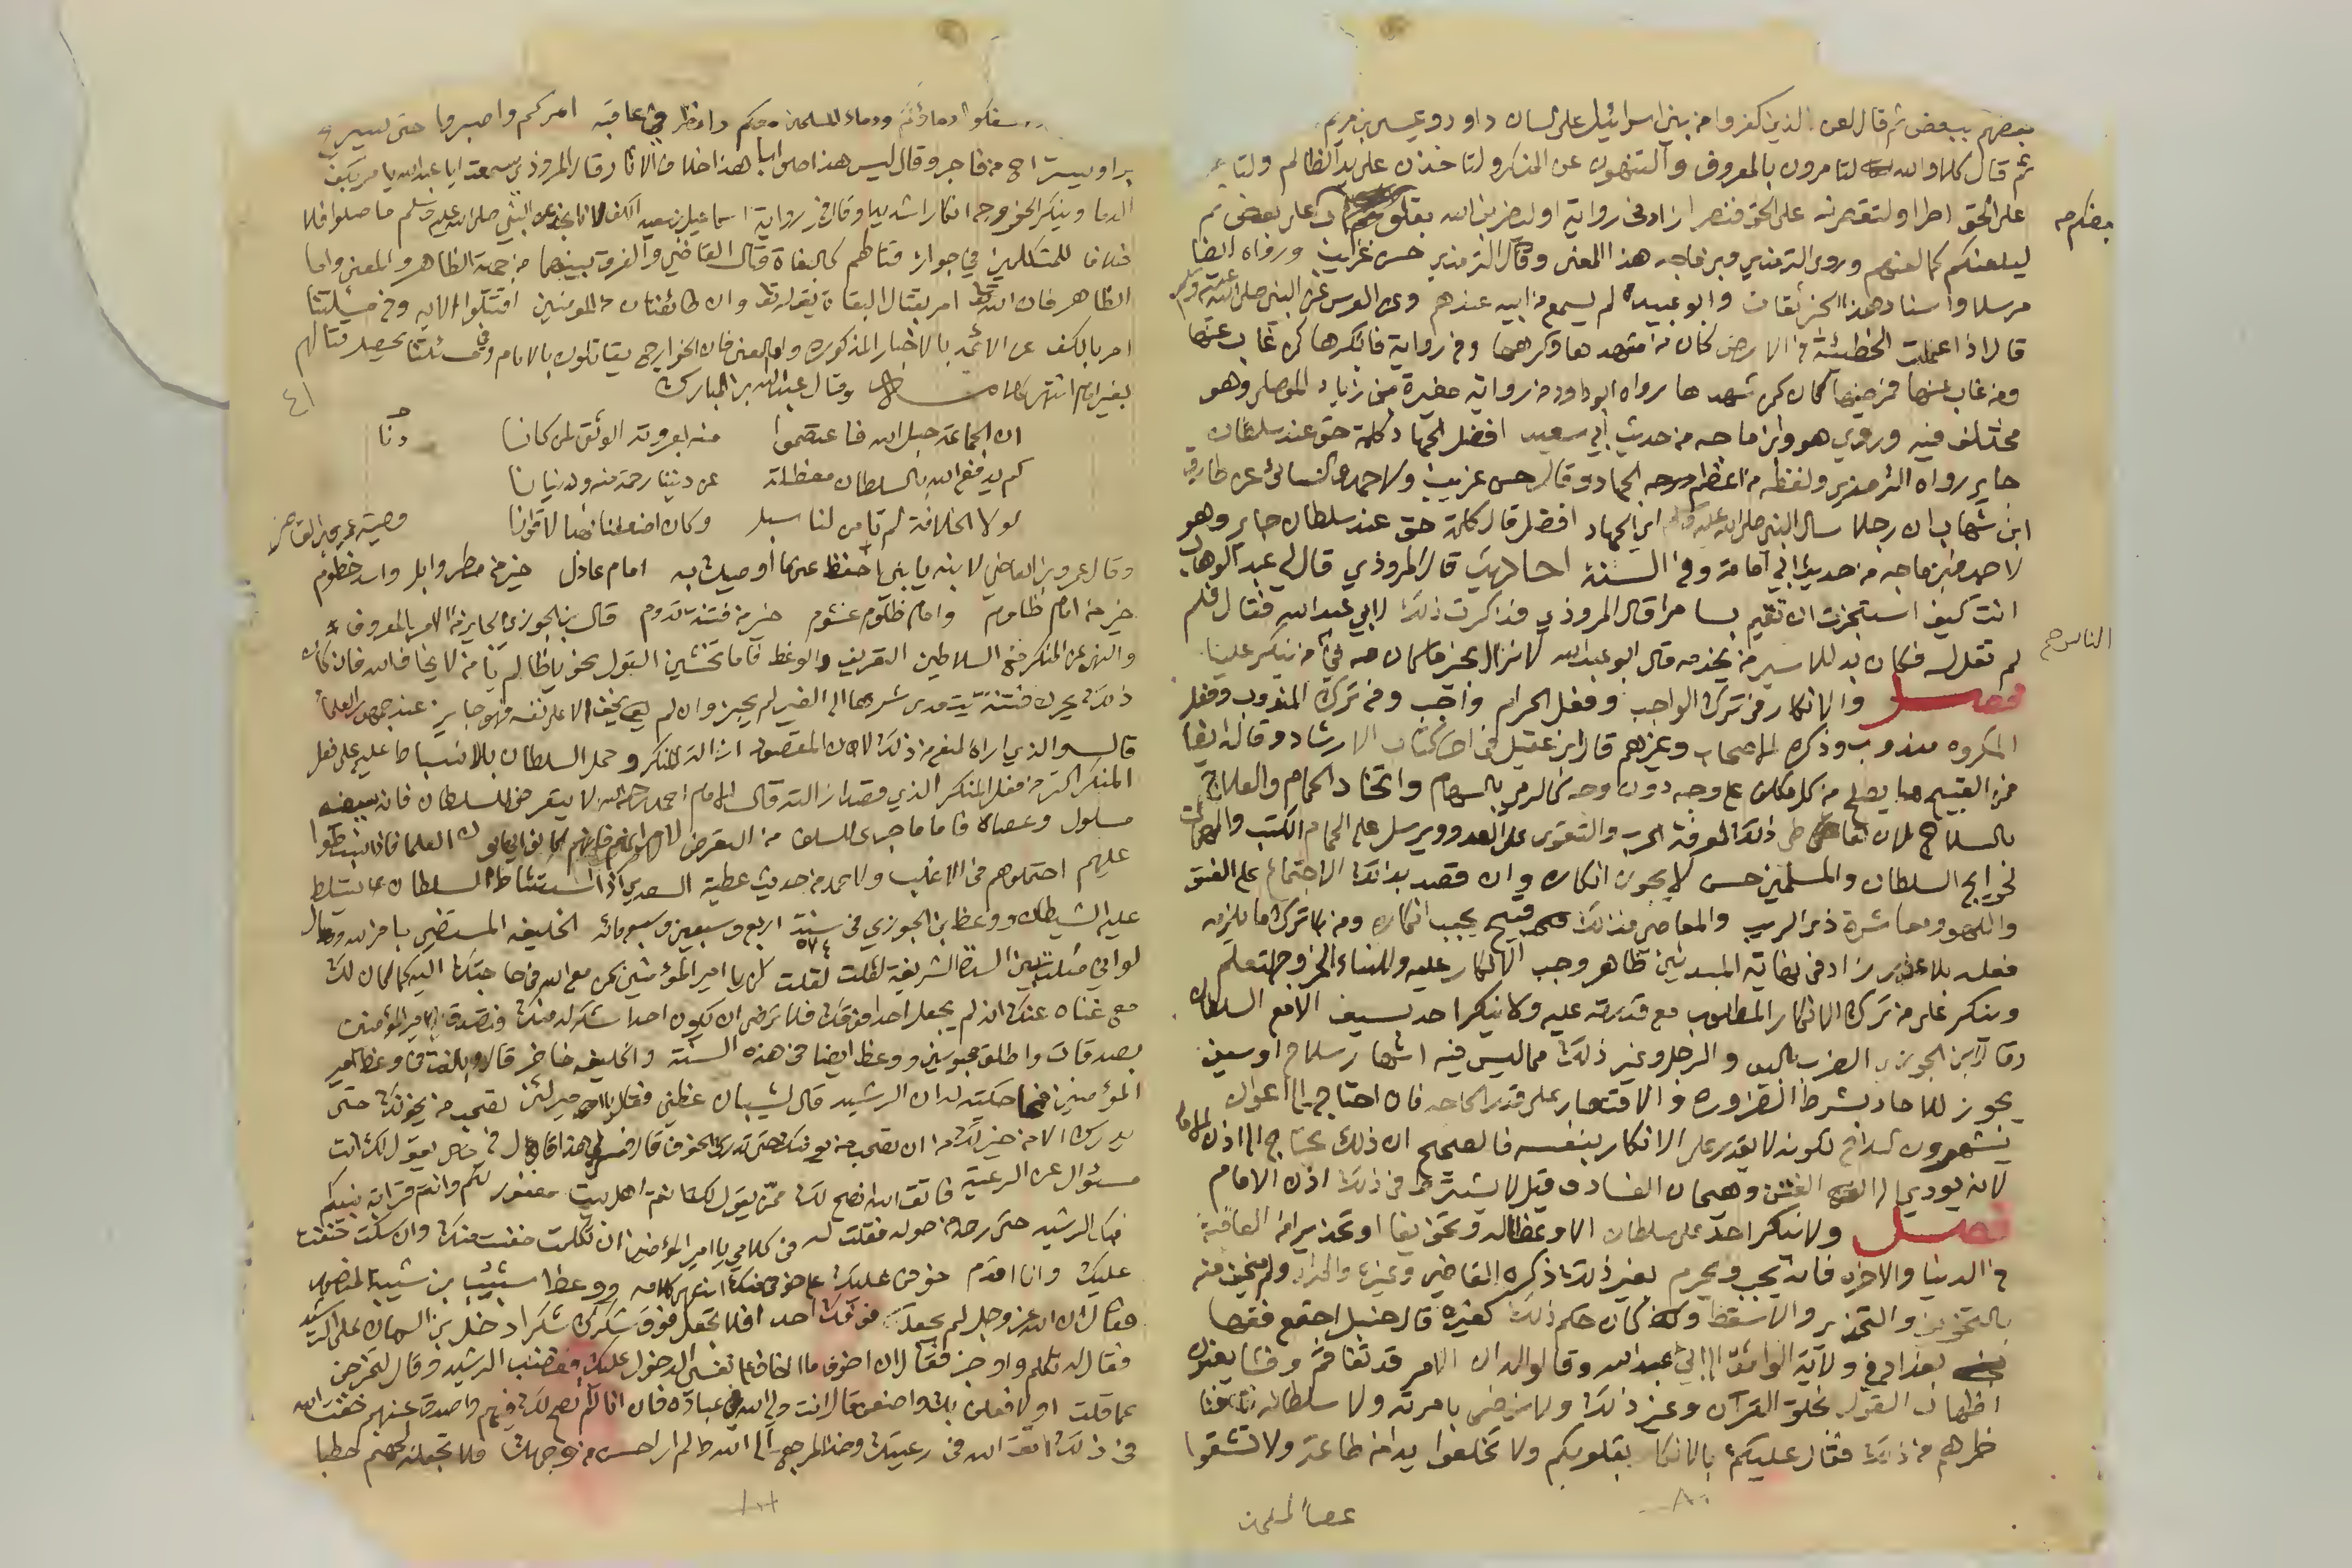 بعضهم ببعض ثم قال لعن الذين كفروا من بني اسرائيل على لسان داود وعيسى بن مريم
ثم قال كلا والله لتامرون بالمعروف ولتنهون عن المنكر ولتاخذن على يد الظالم ولتاطرنه
على الحق اطرا ولتقصرنه على الحق قصرا زاد في رواية او ليضربن الله بقلوب بعضكم على بعض ثم
ليلعنكم كما لعنهم وروى الترمذي وابن ماجه هذا المعنى وقال الترمذي حسن غريب ورواه ايضا
مرسلا واسناد هذا الخبر ثقات وابو عبيدة لم يسمع من ابيه عندهم وعن العرس عن النبي صلى الله عليه وسلم
قال اذا عملت الخطيئة في الارض كان من شهدها وكرهها وفي رواية فانكرها كمن غاب عنها
ومن غاب عنها فرضيها كان كمن شهدها رواه ابو داود من رواية مغيرة بن زياد الموصلي وهو
مختلف فيه وروى هو وابن ماجه من حديث ابي سعيد افضل الجهاد كلمة حق عند سلطان
جاير رواه الترمذي ولفظه من اعظم الجهاد وقال حسن غريب ولاحمد والنسائي عن طارق
ابن شهاب ان رجلا سال النبي صلى الله عليه وسلم اي الجهاد افضل قال كلمة حق عند سلطان جاير وهو
لاحمد وابن ماجه من حديث ابي امامة وفي السنة احاديث قال المروذي قال لي عبد الوهاب
انت كيف استجزت ان تقيم بسامرا قال المروذي فذكرت ذلك لابي عبد الله فقال فلم
لم تقل له فكان بد للاسير من يخدمه قال ابو عبد الله لا نزال بخير ما كان في الناس من ينكر علينا
فصل والانكار في ترك الواجب وفعل الحرام واجب وفي ترك المندوب وفعل
المكروه مندوب وذكره الاصحاب وغيرهم قال ابن عقيل في اخر كتاب الارشاد وقال ايضا
من القبيح ما يصلح من كل مكلف على وجه دون وجه كالرمي بالسهام واتخاذ الحمام والعلاج
بالسلاح لان تعاطي ذلك لمعرفة الحرب والتقوى على العدو ويرسل على الحمام الكتب والمهمات
لحوايج السلطان والمسلمين حسن لا يجوز انكاره وان قصد بذلك الاجتماع على الفسق
واللهو ومعاشرة ذوي الريب والمعاصي فذلك قبيح يجب انكاره ومن ترك ما يلزمه
فعله بلا عذر زاد في نهاية المبتدئين ظاهر وجب الانكار عليه وللنساء الخروج لتعلم
وينكر على من ترك الانكار المطلوب مع قدرته عليه ولا ينكر احد بسيف الا مع السلطان
وقال ابن الجوزي الضرب باليد والرجل وغير ذلك مما ليس فيه اشهار سلاح او سيف
يجوز للاحاد بشرط الضرورة والاقتصار على قدر الحاجه فان احتاج الى اعوان
يشهرون السلاح لكونه لا يقدر على الانكار بنفسه فالصحيح ان ذلك يحتاج الى اذن الامام
لانه يودي الى الفتن وهيجان الفساد وقيل لا يشترط في ذلك اذن الامام
فصل ولا ينكر احد على سلطان الا وعظا له وتخويفا او تحذيرا من العاقبة
في الدنيا والاخرة فانه يجب ويحرم بغير ذلك ذكره القاضي وغيره والمراد ولم يخف منه
بالتخويف والتحذير والا سقط وكان حكم ذلك كغيره قال حنبل اجتمع فقها
بغداد في ولاية الواثق الى ابي عبد الله وقالوا له ان الامر قد تفاقم وفشا يعنون
اظهار القول بخلق القرآن وغير ذلك ولا نرضى بامرته ولا سلطانه فناظرهم
في ذلك فقال عليكم بالانكار بقلوبكم ولا تخلعوا يدا من طاعة ولا تشقوا
عصا المسلمين
بعضكم صح
الناس صح
٨٠
تسفكوا دماءكم ودماء المسلمين معكم وانظروا في عاقبة امركم واصبروا حتى يستريح
بر او يستراح من فاجر وقال ليس هذا صوابا هذا خلاف الاثار وقال المروذي سمعت ابا عبد الله يامر بكف
الدما وينكر الخروج انكارا شديدا وقال في رواية اسماعيل بن سعيد الكف لانا نجد عن النبي صلى الله عليه وسلم ما صلوا فلا
خلافا للمتكلمين في جواز قتالهم كالبغاة قال القاضي والفرق بينهما من جهة الظاهر والمعنى واما
الظاهر فان الله تعالى امر بقتال البغاة بقوله تعالى وان طائفتان من المومنين اقتتلوا الايه وفي مسئلتنا
امر بالكف عن الائمة بالاخبار المذكوره واما المعنى فان الخوارج يقاتلون بالامام وفي مسئلتنا يحصل قتالهم
بغير امام انتهى كلامه وقال عبد الله بن المبارك
ان الجماعة حبل الله فاعتصموا منه بعروته الوثقى لمن كانا
دنا
كم يدفع الله بالسلطان معضلة عن ديننا رحمة منه ودنيانا
لولا الخلافة لم تامن لنا سبل وكان اضعفنا نهبا لاقوانا
وصية عمرو بن العاص
وقال عمرو بن العاص لابنه يا بني احفظ عني ما اوصيك به امام عادل خير من مطر وابل واسد حطوم
خير من امام ظلوم وامام ظلوم غشوم خير من فتنة تدوم قال ابن الجوزي الجايز من الامر بالمعروف
والنهي عن المنكر مع السلاطين التعريف والوعظ فاما تخشين القول نحو يا ظالم يا من لا يخاف الله فان كان
ذلك يحرك فتنة يتعدى شرها الى الغير لم يجز وان لم يخف الا على نفسه فهو جايز عند جمهور العلما
قال والذي اراه المنع من ذلك لان المقصود ازالة المنكر وحمل السلطان بالانبساط عليه على فعل
المنكر اكثر من فعل المنكر الذي قصد ازالته قال الامام احمد رحمه الله لا يتعرض للسلطان فان سيفه
مسلول وعصاه فاما ما جرى للسلف من التعرض لامرائهم فانهم كانوا يهابون العلما فاذا انبسطوا
عليهم احتملوهم في الاغلب ولاحمد من حديث عطية السعدي اذا استشاط السلطان تسلط
عليه الشيطان ووعظ ابن الجوزي في سنة اربع وسبعين وخمسمائه الخليفه المستضي بامر الله وقال
٥٧٤
لو اني مثلت بين السدة الشريفة لقلت يا امير المؤمنين كن مع الله في حاجتك اليه كما كان لك
مع غناه عنك انه لم يجعل احدا فوقك فلا ترضى ان يكون احدا اشكر له منك فتصدق امير المؤمنين
بصدقات واطلق محبوسين ووعظ ايضا في هذه السنة والخليفه حاضر قال وبالغت في وعظ امير
المؤمنين فما حكيته له ان الرشيد قال لشيبان عظني فقال يا امير المؤمنين لئن تصحب من يخوفك حتى
يدركك الامن خير لك من ان تصحب من يؤمنك حتى يدركك الخوف قال فسر لي هذا قال من يقول لك انت
مسئول عن الرعية فاتق الله انصح لك ممن يقول لك انتم اهل بيت مغفور لكم وانتم قرابة نبيكم
فبكى الرشيد حتى رحمه من حوله فقلت له في كلامي يا امير المؤمنين ان تكلمت خفت منك وان سكت خفت
عليك وانا اقدم خوفي عليك على خوفي منك انتهى كلامه ووعظ شبيب بن شيبة المنصور
فقال ان الله عز وجل لم يجعل فوقك احدا فلا تجعل فوق شكرك شكرا ودخل ابن السماك على الرشيد
فقال له تكلم واوجز فقال ان اخوف ما اخاف على نفسي الدخول عليك فغضب الرشيد وقال لتخرجن
مما قلت او لافعلن بك واصنعن قال انت ولي الله في عباده فان انا لم انصح لك فيهم واصدق عنهم خفت الله
في ذلك اتق الله في رعيتك وخذ المرجع الى الله لم ار احسن من وجهك فلا تجعله لجهنم حطبا